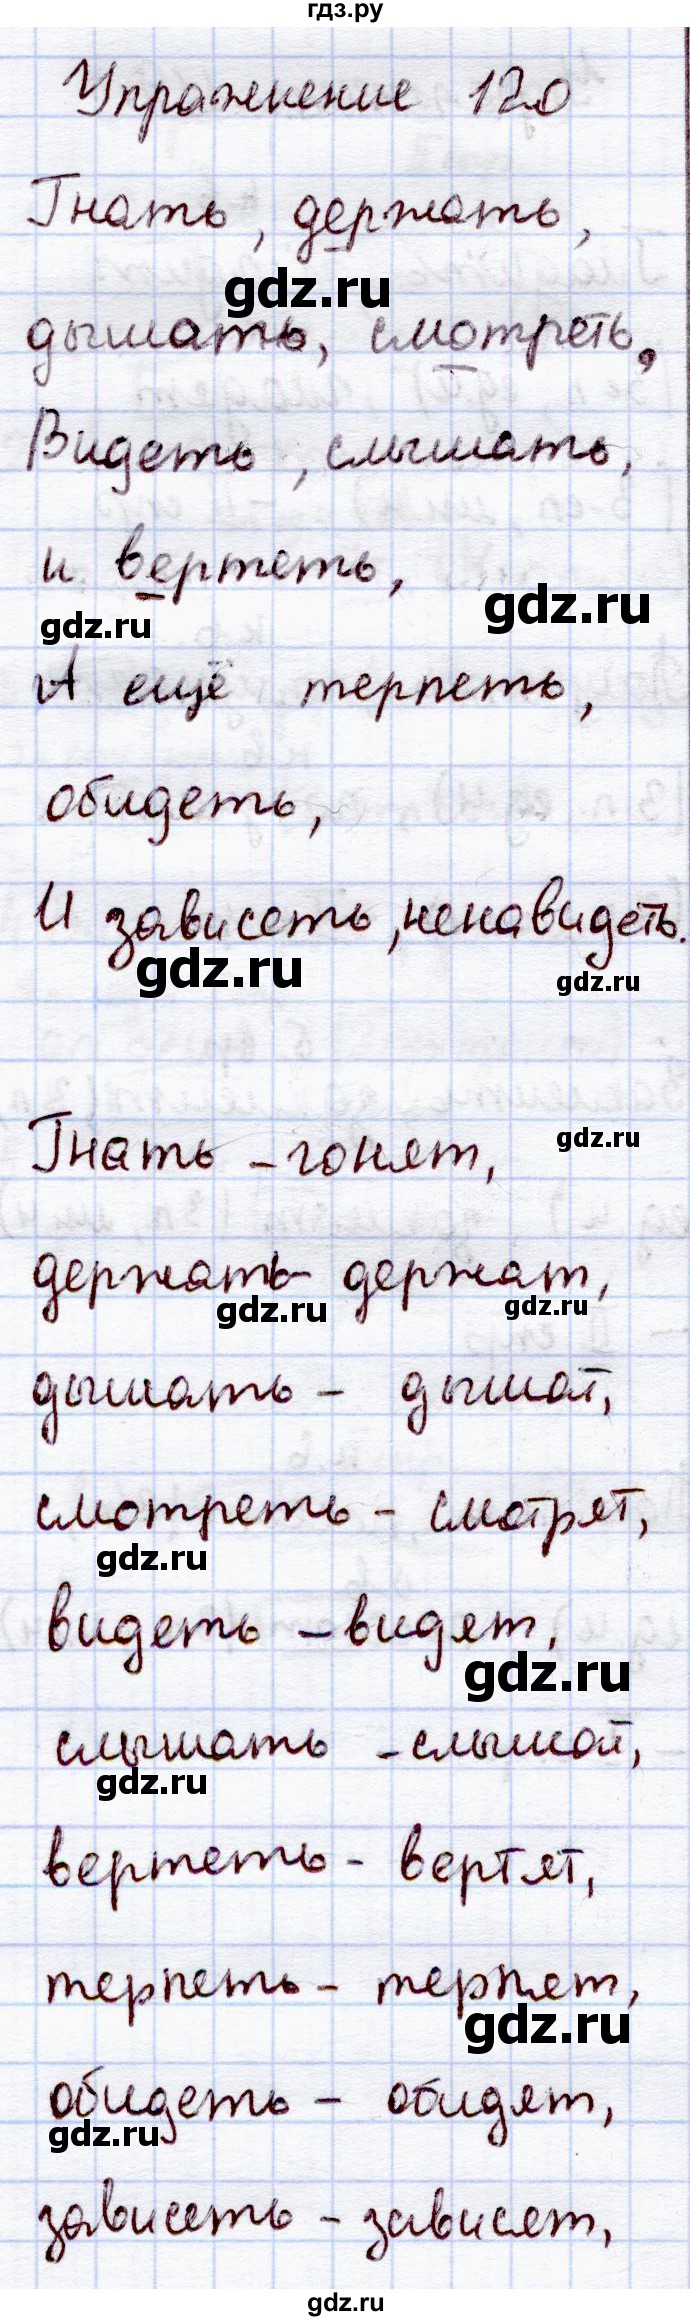 гдз.ру
Упражнение 120
Гнать, держать,
gdz.ru
дышать, смотреть,
Видеть, слышать,
и вертеть,
gdz.ru
gdz.ru
А ещё терпеть,
обидеть,
И зависеть, ненавидеть.
gdz.ru
gdz.ru
Гнать – гонят,
gdz.ru
держать – держат,
gdz.ru
gdz.ru
дышать – дышат,
смотреть – смотрят,
gdz.ru
видеть – видят,
gdz.ru
слышать – слышат,
gdz.ru
вертеть – вертят,
терпеть – терпят,
gdz.ru
обидеть – обидят,
gdz.ru
зависеть – зависят,
gdz.ru